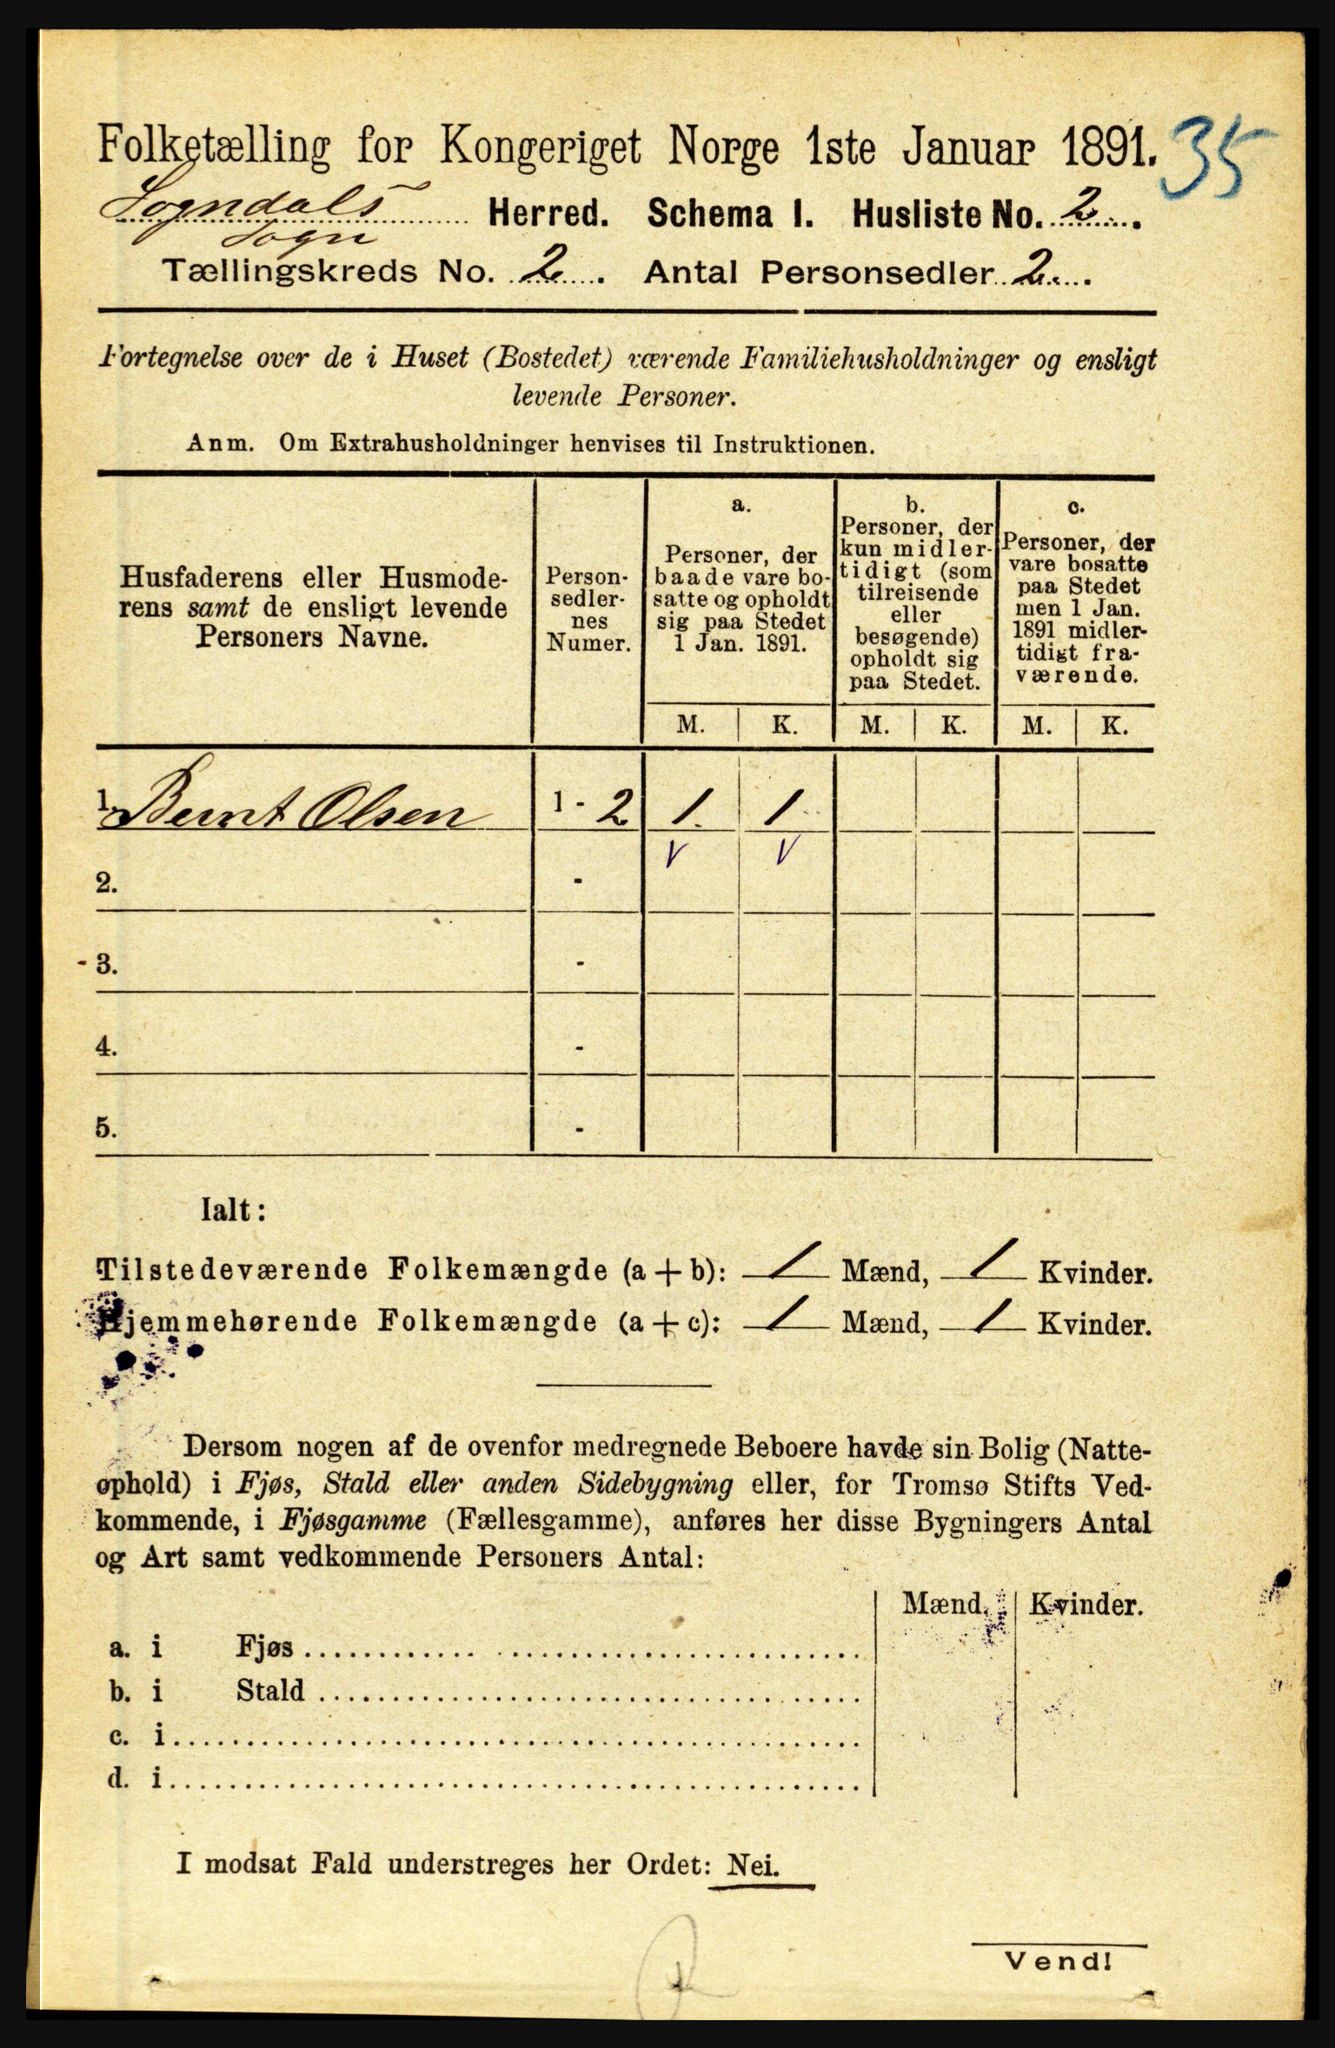 Folketælling for Kongeriget Norge 1ste Januar 1891. 35
Sogndals Herred. Schema I. Husliste No. 2.
Sogn
Tællingskreds No. 2. Antal Personsedler 2.
Fortegnelse over de i Huset (Bostedet) værende Familiehusholdninger og ensligt
levende Personer.
Anm. Om Extrahusholdninger henvises til Instruktionen.
Husfaderens eller Husmode-
rens samt de ensligt levende
Personers Navne.
Person-
sedler-
nes
Numer.
a.
Personer, der
baade vare bo-
satte og opholdt
sig paa Stedet
1 Jan. 1891.
b.
Personer, der
kun midler-
tidigt (som
tilreisende
eller
besøgende)
opholdt sig
paa Stedet.
c.
Personer, der
vare bosatte
paa Stedet
men 1 Jan.
1891 midler-
tidigt fra-
værende.
M. K. M. K. M. K.
1. Bernt Olsen 1 - 2 1. 1.
V V
2. -
3. -
4. -
5. -
Ialt:
Tilstedeværende Folkemængde (a + b): 1 Mænd, 1 Kvinder.
Hjemmehørende Folkemængde (a + c): 1 Mænd, 1 Kvinder.
Dersom nogen af de ovenfor medregnede Beboere havde sin Bolig (Natte-
ophold) i Fjøs, Stald eller anden Sidebygning eller, for Tromsø Stifts Ved-
kommende, i Fjøsgamme (Fællesgamme), anføres her disse Bygningers Antal
og Art samt vedkommende Personers Antal:
Mænd. Kvinder.
a. i Fjøs
b. i Stald
c. i
d. i
I modsat Fald understreges her Ordet: Nei.
Vend!